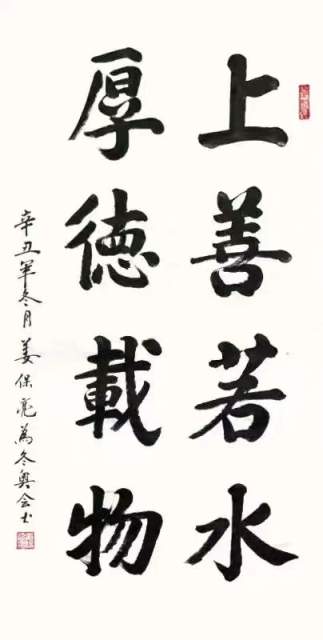 上善若水
厚德載物
辛丑年冬月姜保亮为冬奥会书